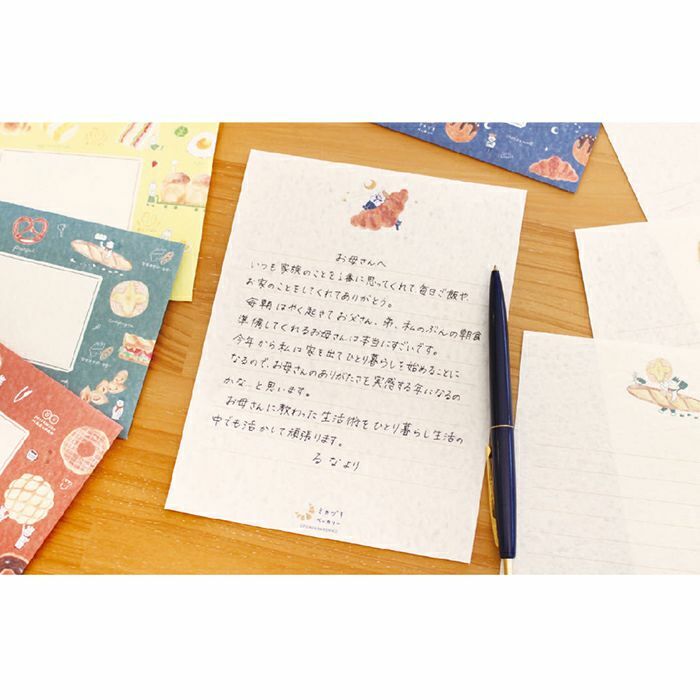 お母さんへ
いつも家族のことを1番に思ってくれて毎日ご飯や、
お家のことをしてくれてありがとう。
毎朝はやく起きてお父さん、弟、私のぶんの朝食
準備してくれるお母さんは本当にすごいです。
今年から私は家を出てひとり暮らしを始めることに
なるので、お母さんのありがたさを実感する年になるの
かな…と思います。
お母さんに教わった生活術をひとり暮らし生活の
中でも活かして頑張ります。
るなより
ミカヅキ
ベーカリー